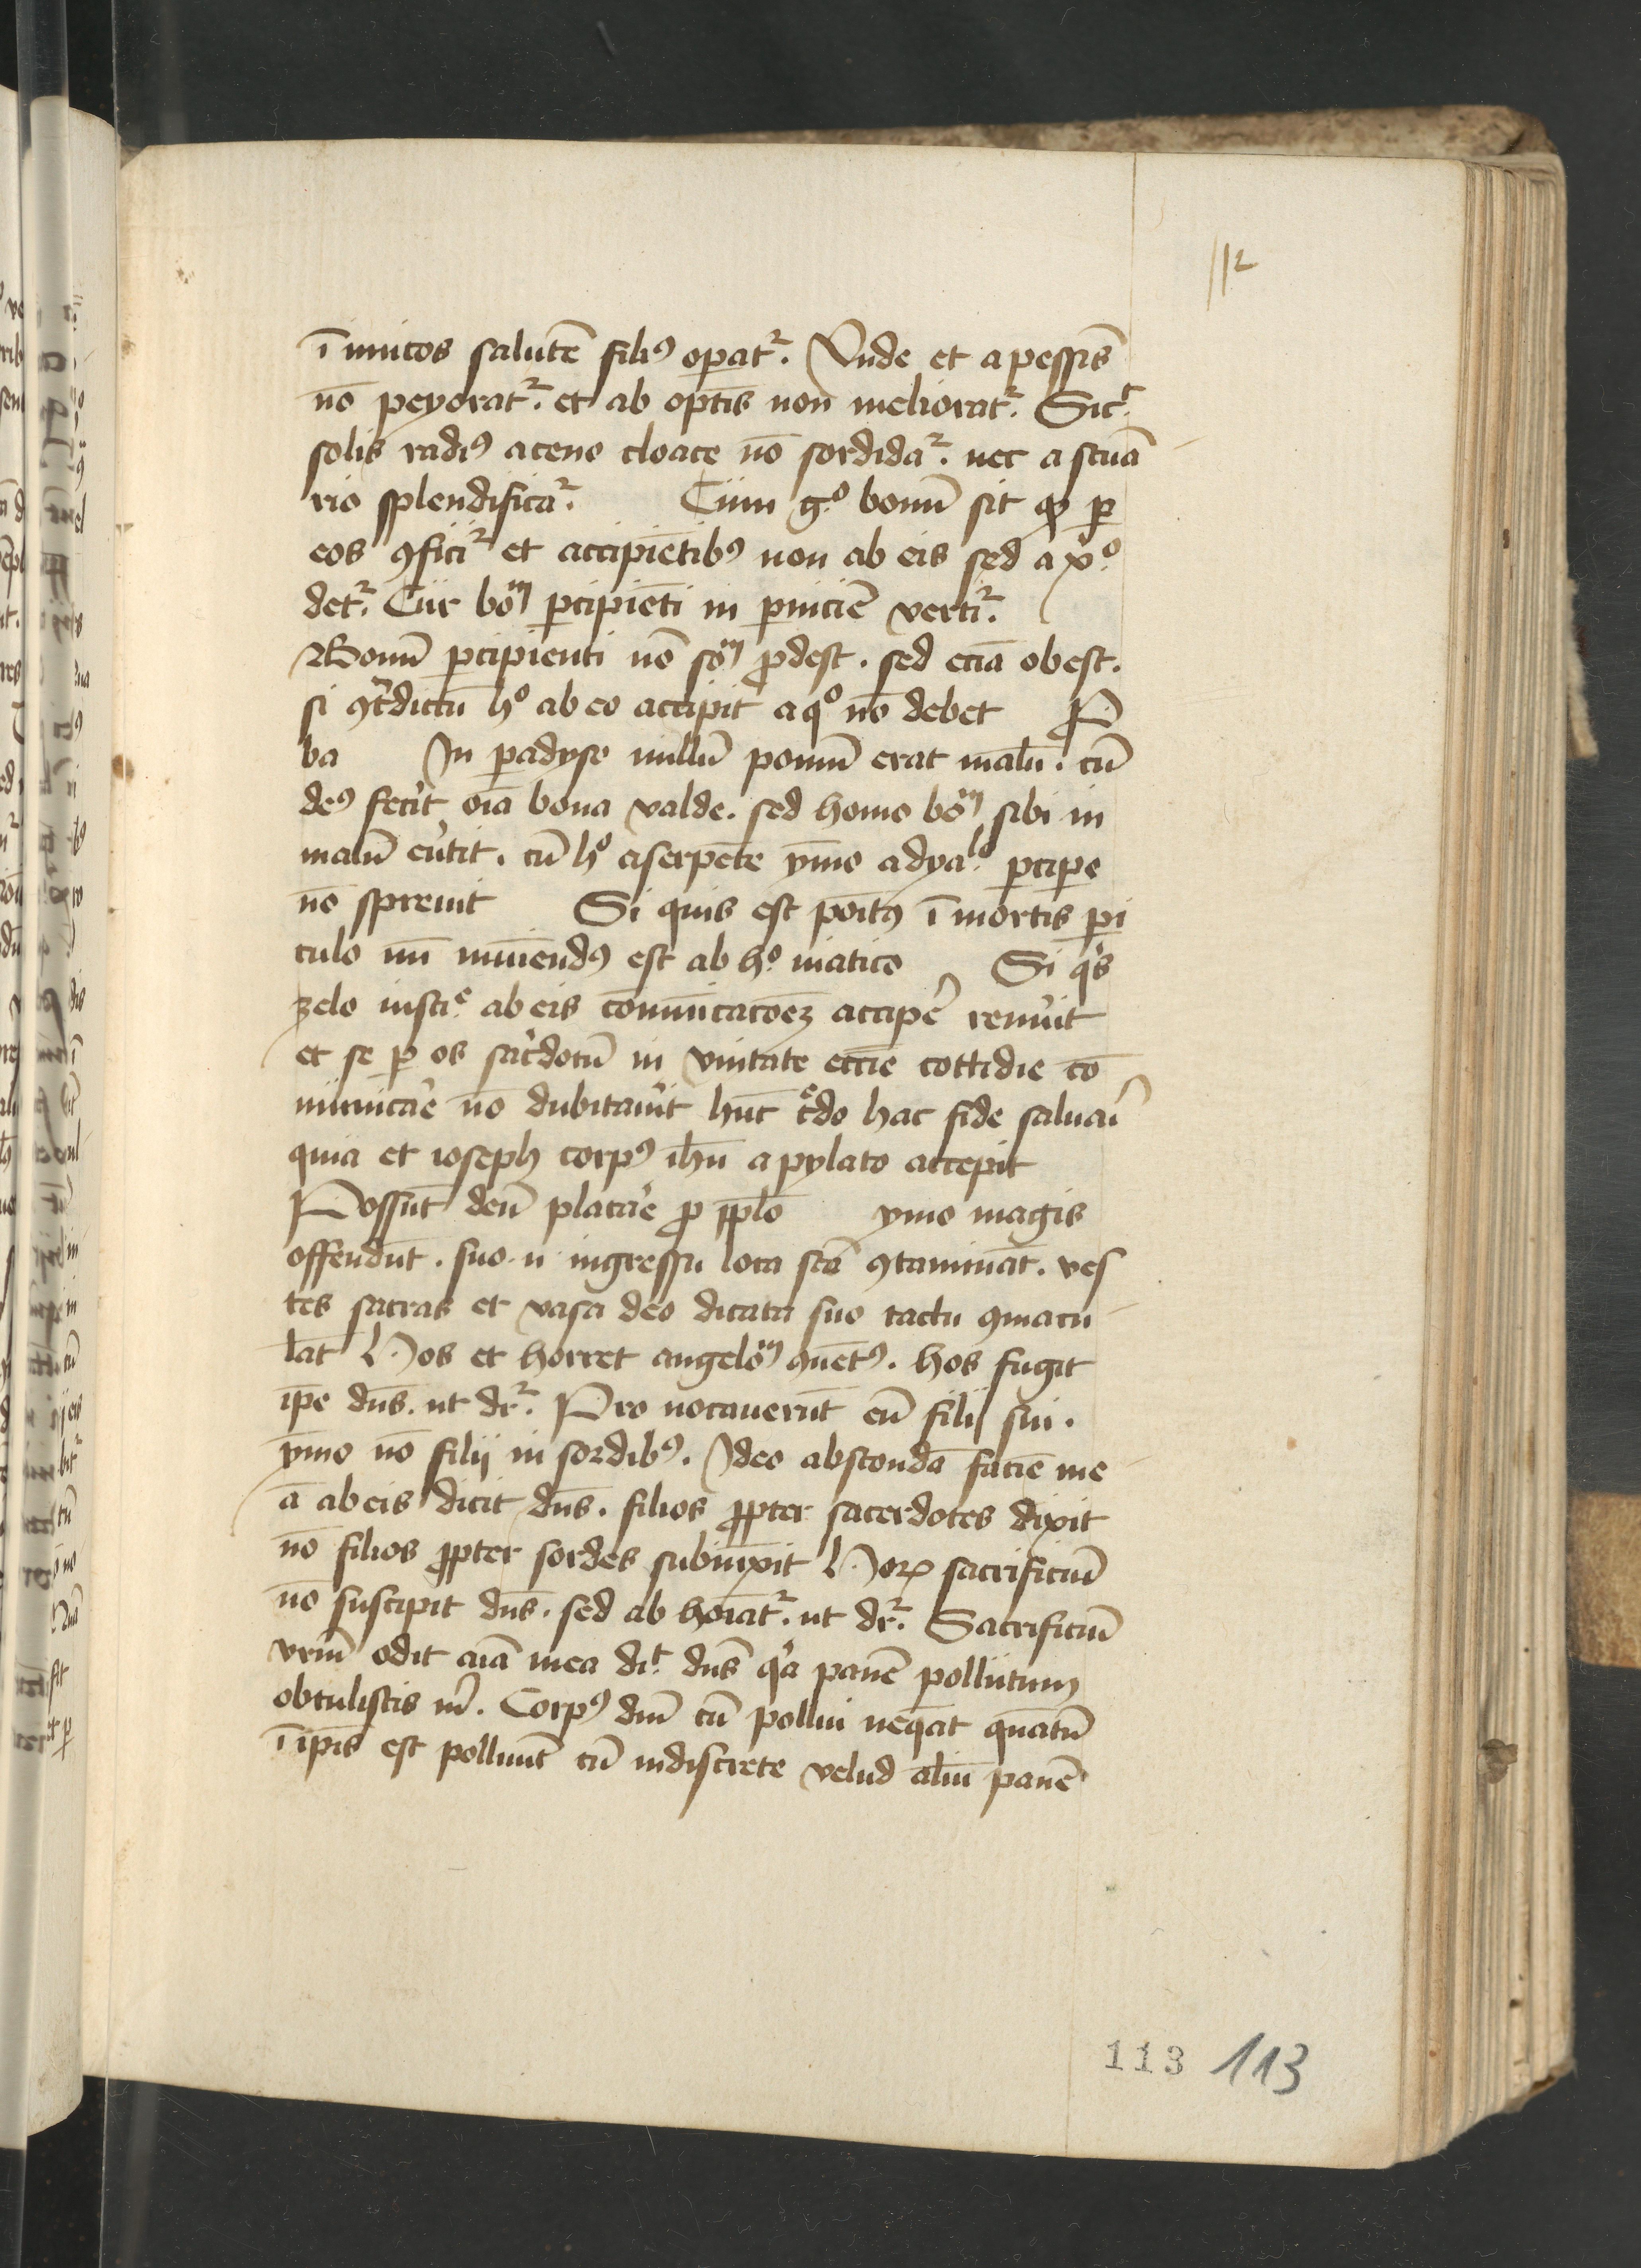 112
ī imicos salutē filiꝯ opat᷑. Vnde et a pessīs
nō peyorat᷑. et ab optīs non meliorat᷑. Sic᷑
solis radiꝯ a ceno cloace nō sordida᷑. nec a scuā
rio splendifica᷑. Cum g̊ bonū sit qꝫ ꝑ
eos ꝯfici᷑ et accipiētibꝯ non ab eis sed a xº
det᷑. Cur boͫ ꝑcipiēti in ꝑniciē verti᷑.
Bonū ꝑcipienti nō soͫ ꝓdest. sed eciā obest.
si ꝯtᷓdictū hº ab eo accipit a qº nō debet Ꝓ
ba In ꝑadyso nullū pomū erat malū. cū
deꝯ fecit oīa bona valde. sed homo boͫ sibi in
malū eu᷑tit. cū hº a serpēte ymo a dyaˡº ꝑcipe
nō spreuit Si quis est poītꝯ ī mortis ꝑi
culo nū muniendꝯ est ab hº uiatico Si qͥs
zelo iustiͤ ab eis cōmunicacōeꝫ accipe᷑ renuit
et se ꝑ os sac᷑dotū in vnitate ecc̄ie cottidie cō
municae᷑ nō dubitauit hūc cͤdo hac fide saluai᷑
quia et ioseph corpꝯ ihū a pylato accepit
Possūt deū placae᷑ ꝓ pplo ymo magis
offendūt. suo .n. ingressu loca scā ꝯtaminā̄t. ves
tes sacras et vasa deo dicata suo tactu ꝯmacu
lāt Hos et horret angeloͫ ꝯuētꝯ. hos fugit
ip̄e dn̄s. ut dr᷑. Pro uocauerūt eū filij sui.
ymo nō filij in sordibꝯ. Ideo abscondā faciē me
ā ab eis dicit dn̄s. filios ꝓpter sacerdotes dixit
nō filios ꝓpter sordes subiūxit Hoꝝ sacrificiū
nō suscipit dn̄s. sed ab hoīat᷑. ut dr᷑. Sacrificiū
vr̄m odit aīa mea diͭ dn̄s qͥa panē pollutum
obtulistis m͛. Corpꝯ dn̄i cū pollui neqāt quātū
ī ip̄is est polluūt cū indiscrete velud aliū panē
113 113